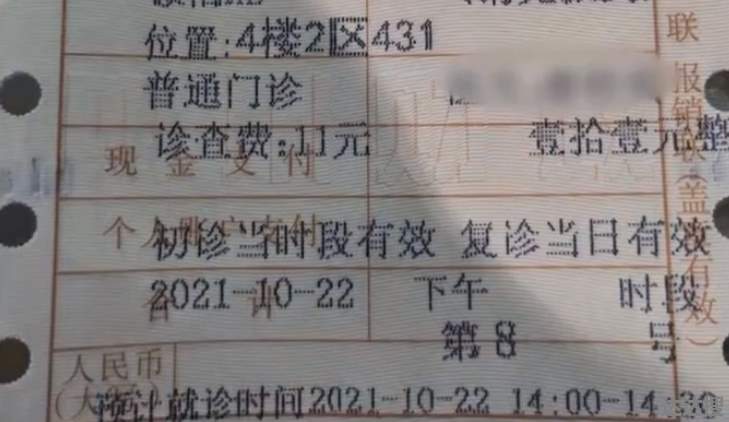 位置:4楼2区431
普通门诊
诊查费:11元 壹拾壹元整
现金支付
个人账户支付
初诊当时段有效 复诊当日有效
合计
2021-10-22 下午 时段
第8号
人民币
预计就诊时间2021-10-22 14:00-14:30
联 报销联(盖 有效)